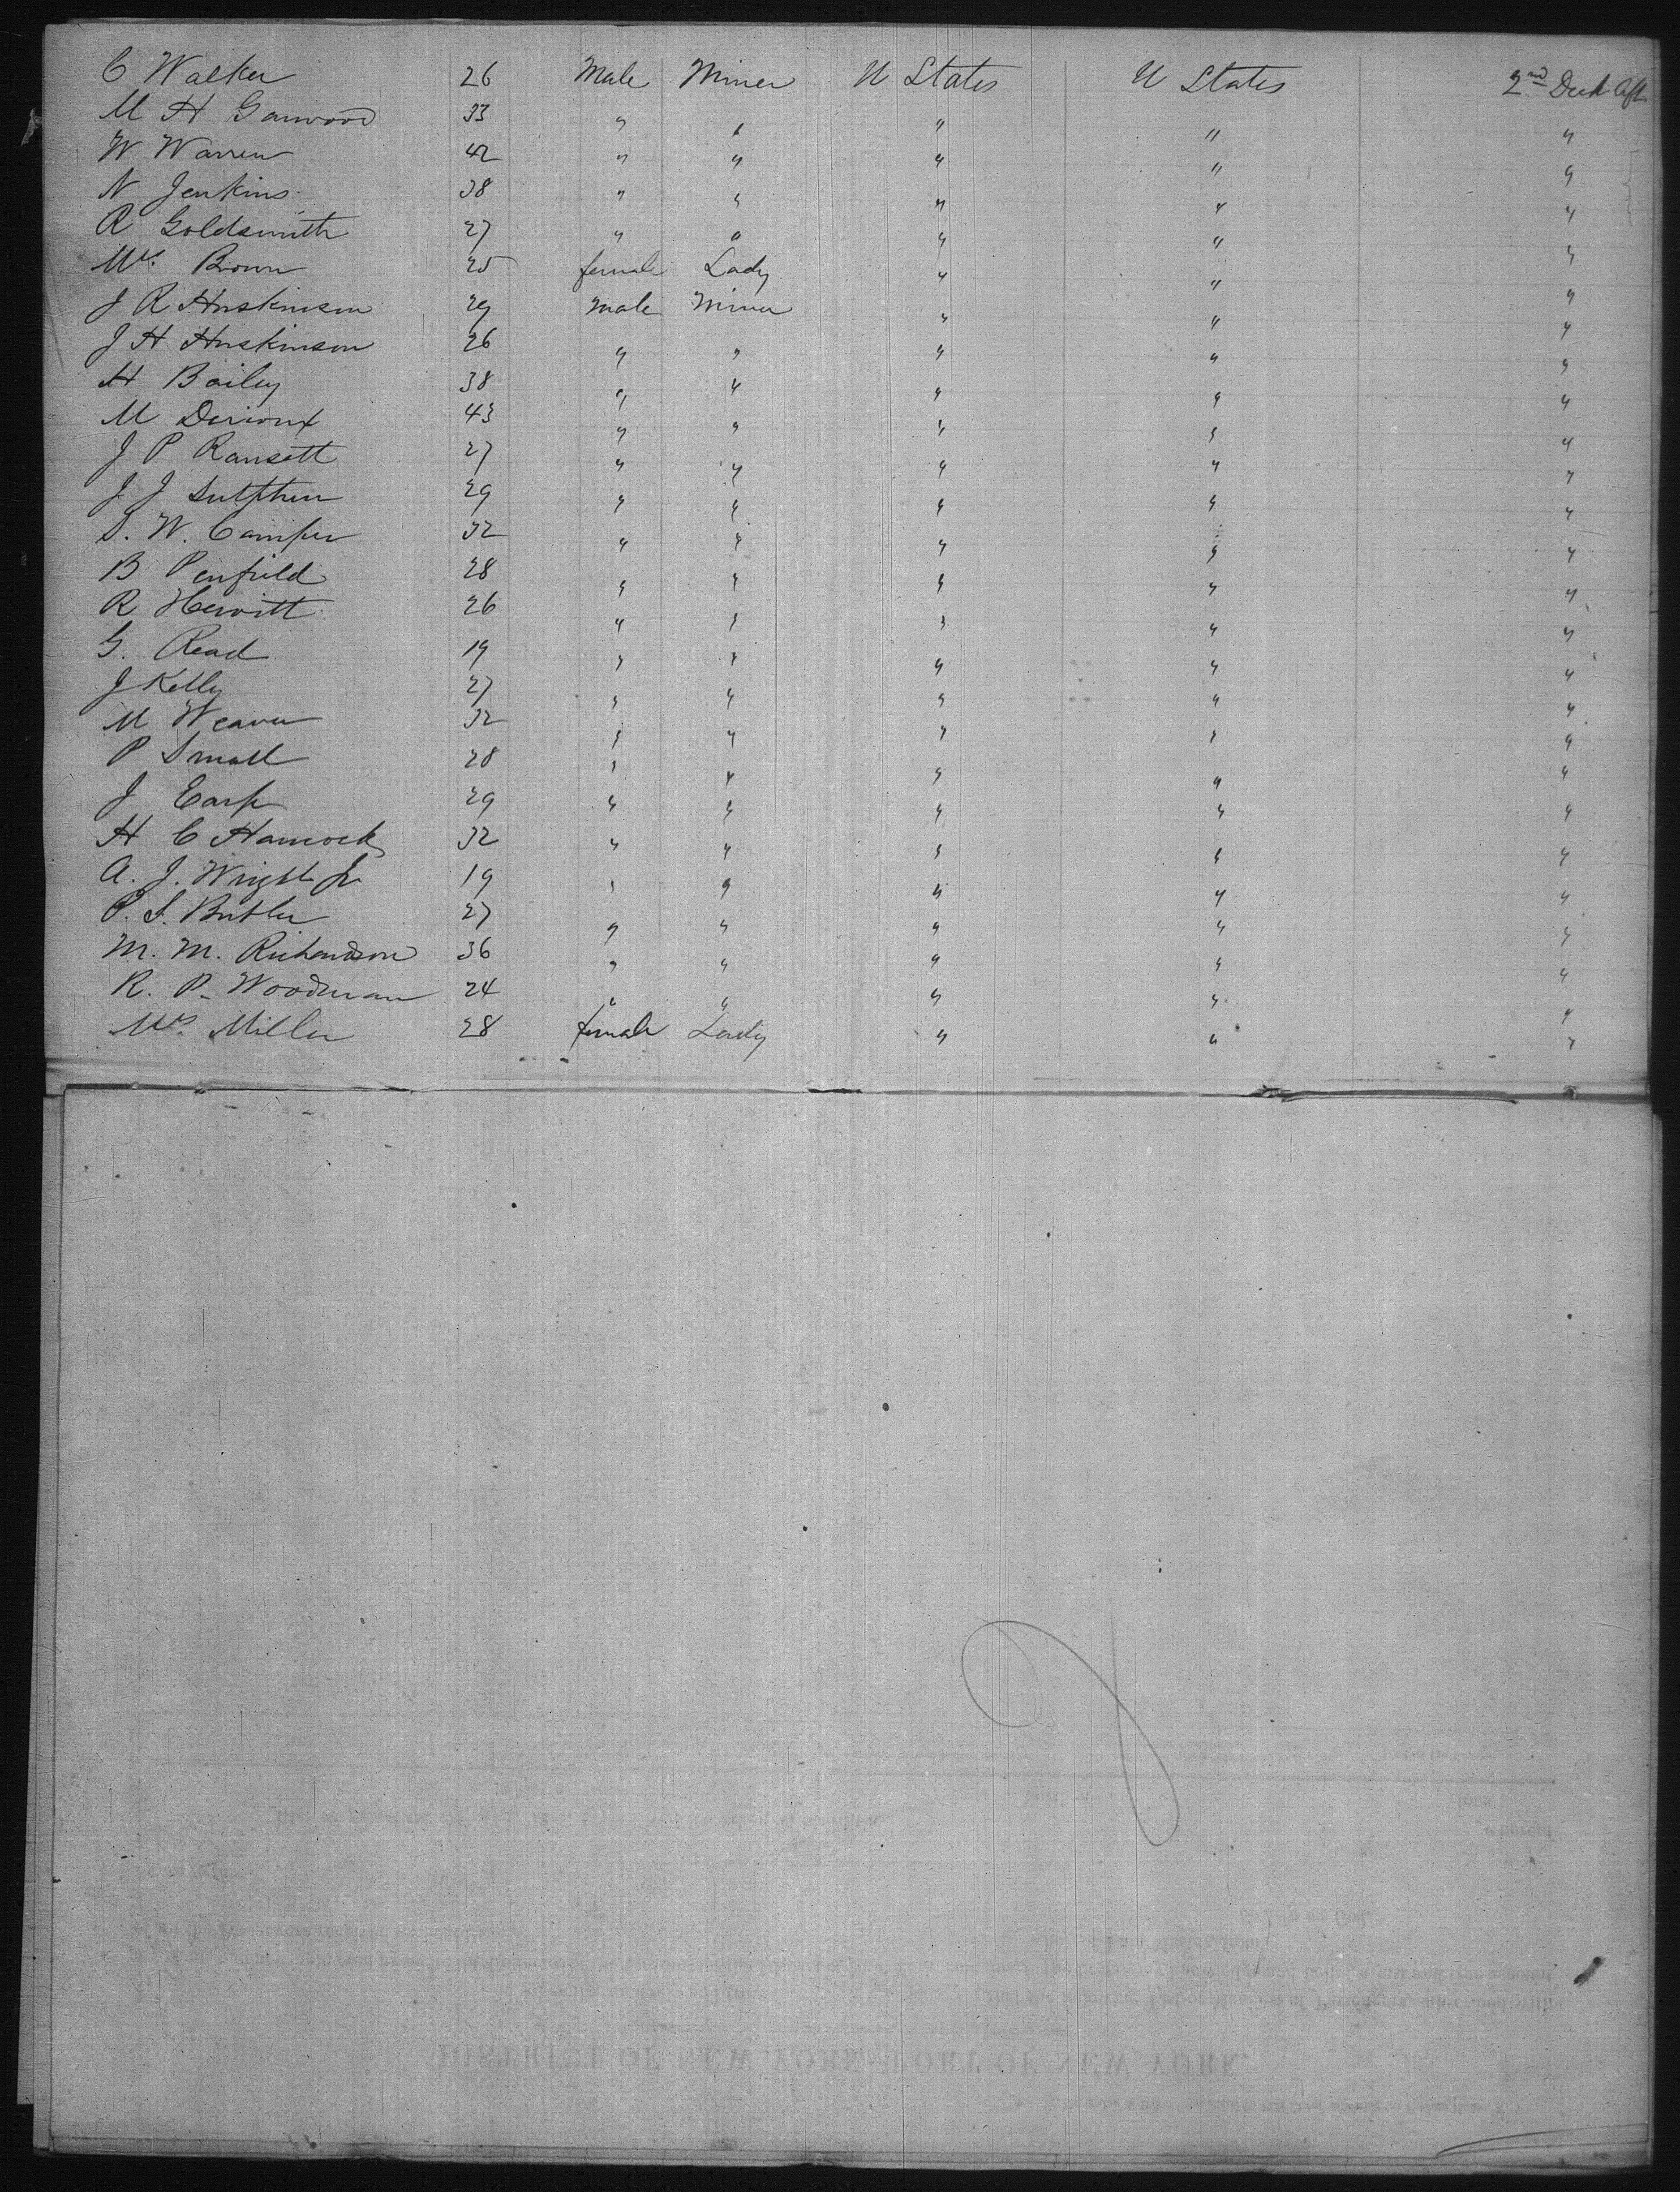 C Walker 26 Male Miner U States U States 2nd Deck Aft
M H Garwood 33 " " " " "
W Warren 42 " " " " "
N Jenkins 38 " " " " "
R Goldsmith 27 " " " " "
Mrs. Brown 25 female Lady " " "
J R Huskinson 29 male Miner " " "
J H Huskinson 26 " " " " "
H Bailey 38 " " " " "
M 43 " " " " "
J P Ransett 27 " " " " "
J J Sutphen 29 " " " " "
S. W. Camper 32 " " " " "
B Penfield 28 " " " " "
R Hewitt 26 " " " " "
G. Read 19 " " " " "
J Kelly 27 " " " " "
M Weaver 32 " " " " "
P Small 28 " " " " "
J Earp 29 " " " " "
H C Hancock 32 " " " " "
A. J. Wright Jr 19 " " " " "
P. S. Butler 27 " " " " "
M. M. Richardson 36 " " " " "
R. P. Woodman 24 " " " " "
Mrs. Miller 28 female Lady " " "
DISTRICT OF NEW YORK—PORT OF NEW YORK